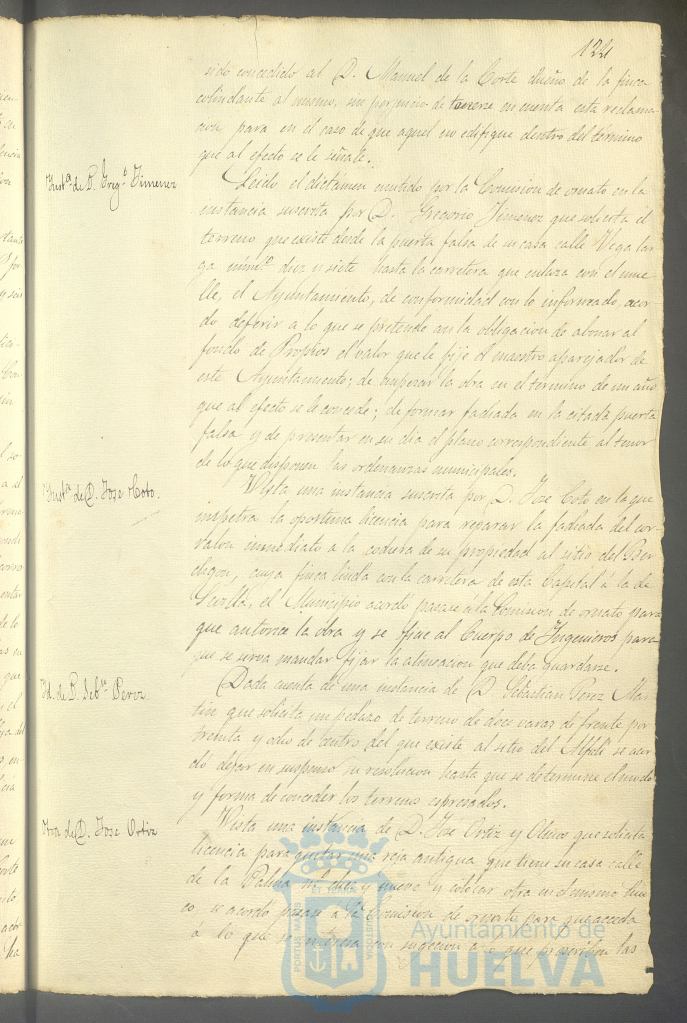 124
sido concedido al D. Manuel de la Corte dueño de la finca
colindante al mismo, sin perjuicio de tenerse en cuenta esta reclama
cion para en el caso de que aquel no edifique dentro del termino
que al efecto se le señale.
Inst.ª de D. Greg.º Jimenez
Leido el dictamen emitido por la Comision de ornato en la
instancia suscrita por D. Gregorio Jimenez que solicita el
terreno que existe desde la puerta falsa de su casa calle Vega lar
ga num.º diez y siete hasta la carretera que enlaza con el mue
lle, el Ayuntamiento, de conformidad con lo informado, acor
dó deferir a lo que se pretende con la obligacion de abonar al
fondo de Propios el valor que le fije el maestro aparejador de
este Ayuntamiento; de empezar la obra en el término de un año
que al efecto se le concede; de formar fachada en la citada puerta
falsa y de presentar en su dia el plano correspondiente al tenor
de lo que disponen las ordenanzas municipales.
Inst.ª de D. Jose Coto.
Vista una instancia suscrita por D. Jose Coto en la que
impetra la oportuna licencia para reparar la fachada del cor
ralon inmediato a la de su propiedad al sitio del
cuya finca linda con la carretera de esta Capital á la de
Sevilla, el Municipio acordó pasase á la Comision de ornato para
que autorice la obra y se oficie al Cuerpo de Ingenieros para
que se sirva mandar fijar la alineacion que deba guardarse.
Id. de D. Seb.n Perez
Dada cuenta de una instancia de D. Sebastian Perez Mar
tin que solicita un pedazo de terreno de doce varas de frente por
treinta y ocho de centro del que existe al sitio del se acor
dó dejar en suspenso su resolucion hasta que se determine el modo
y forma de conceder los terrenos espresados.
Otra de D. Jose Ortiz
Vista una instancia de D. Jose Ortiz y que solicita
licencia para quitar una reja antigua que tiene su casa calle
de la Palma n.º diez y nueve y colocar otra en el mismo hue
co se acordó pasase a la Comision de ornato para que acceda
á lo que se interesa con sujecion a lo que prescriben las
PORTUS MARIS
ET TERRAE
CUSTODIA
Ayuntamiento de
HUELVA